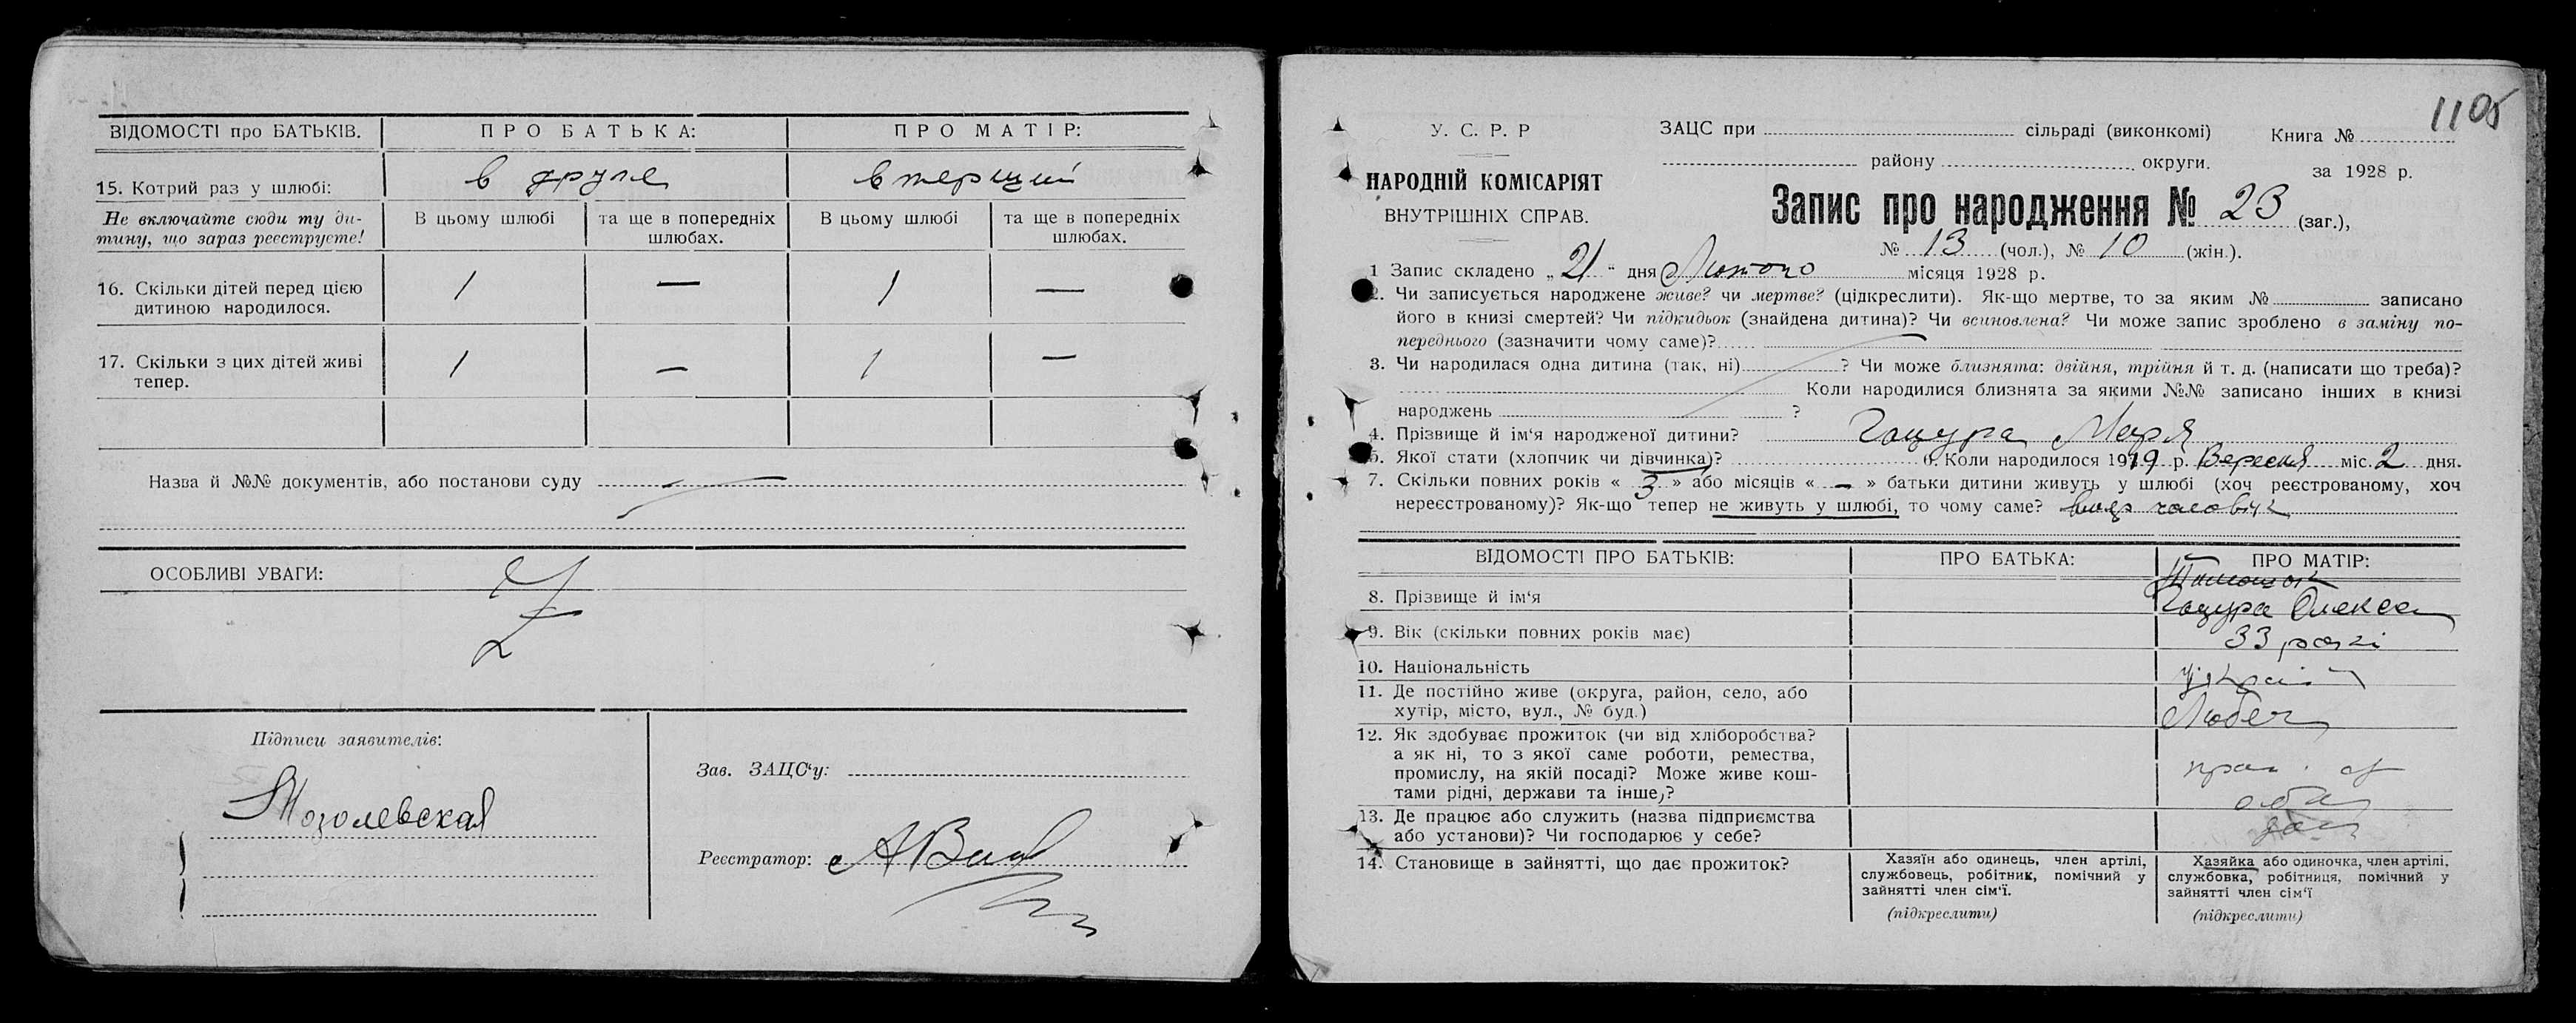 ВІДОМОСТІ про БАТЬКІВ. ПРО БАТЬКА: ПРО МАТІР:
15. Котрий раз у шлюбі: в друге в перший
Не включайте сюди ту ди-
тину, що зараз реєструєте!
В цьому шлюбі
та ще в попередніх
шлюбах.
В цьому шлюбі
та ще в попередніх
шлюбах.
16. Скільки дітей перед цією
дитиною народилося.
1 — 1 —
17. Скільки з цих дітей живі
тепер.
1 — 1 —
Назва й №№ документів, або постанови суду
ОСОБЛИВІ УВАГИ:
Підписи заявителів:
Мозолевская
Зав. ЗАЦС‘у:
Реєстратор:
1105
У. С. Р. Р
НАРОДНІЙ КОМІСАРІЯТ
ВНУТРІШНІХ СПРАВ.
ЗАЦС при сільраді (виконкомі)
району округи.
Книга №
за 1928 р.
Запис про народження № 23 (заг.),
№ 13 (чол.), № 10 (жін.).
1 Запис складено „21“ дня Лютого місяця 1928 р.
2. Чи записується народжене живе? чи мертве? (цідкреслити). Як-що мертве, то за яким № записано
його в книзі смертей? Чи підкидьок (знайдена дитина)? Чи всиновлена? Чи може запис зроблено в заміну по-
переднього (зазначити чому саме)?
3. Чи народилася одна дитина (так, ні) ? Чи може близнята: двійня, трійня й т. д. (написати що треба)?
Коли народилися близнята за якими №№ записано інших в книзі
народжень ?
4. Прізвище й ім‘я народженої дитини? Гацура Марія
5. Якої стати (хлопчик чи дівчинка)? 6. Коли народилося 1919 р. Вересня міс. 2 дня.
7. Скільки повних років « 3 » або місяців « — » батьки дитини живуть у шлюбі (хоч реєстрованому, хоч
нереєстрованому)? Як-що тепер не живуть у шлюбі, то чому саме? вмер чоловік
ВІДОМОСТІ ПРО БАТЬКІВ: ПРО БАТЬКА: ПРО МАТІР:
8. Прізвище й ім‘я
Гацура Олекса
9. Вік (скільки повних років має) 33 роки
10. Національність
11. Де постійно живе (округа, район, село, або
хутір, місто, вул., № буд.)
Любеч
12. Як здобуває прожиток (чи від хліборобства?
а як ні, то з якої саме роботи, ремества,
промислу, на якій посаді? Може живе кош-
тами рідні, держави та інше)?
13. Де працює або служить (назва підприємства
або установи)? Чи господарює у себе?
14. Становище в зайнятті, що дає прожиток?
Хазяїн або одинець, член артілі,
службовець, робітник, помічний у
зайнятті член сім‘ї.
(підкреслити)
Хазяйка або одиночка, член артілі,
службовка, робітниця, помічний у
зайнятті член сім‘ї
(підкреслити)